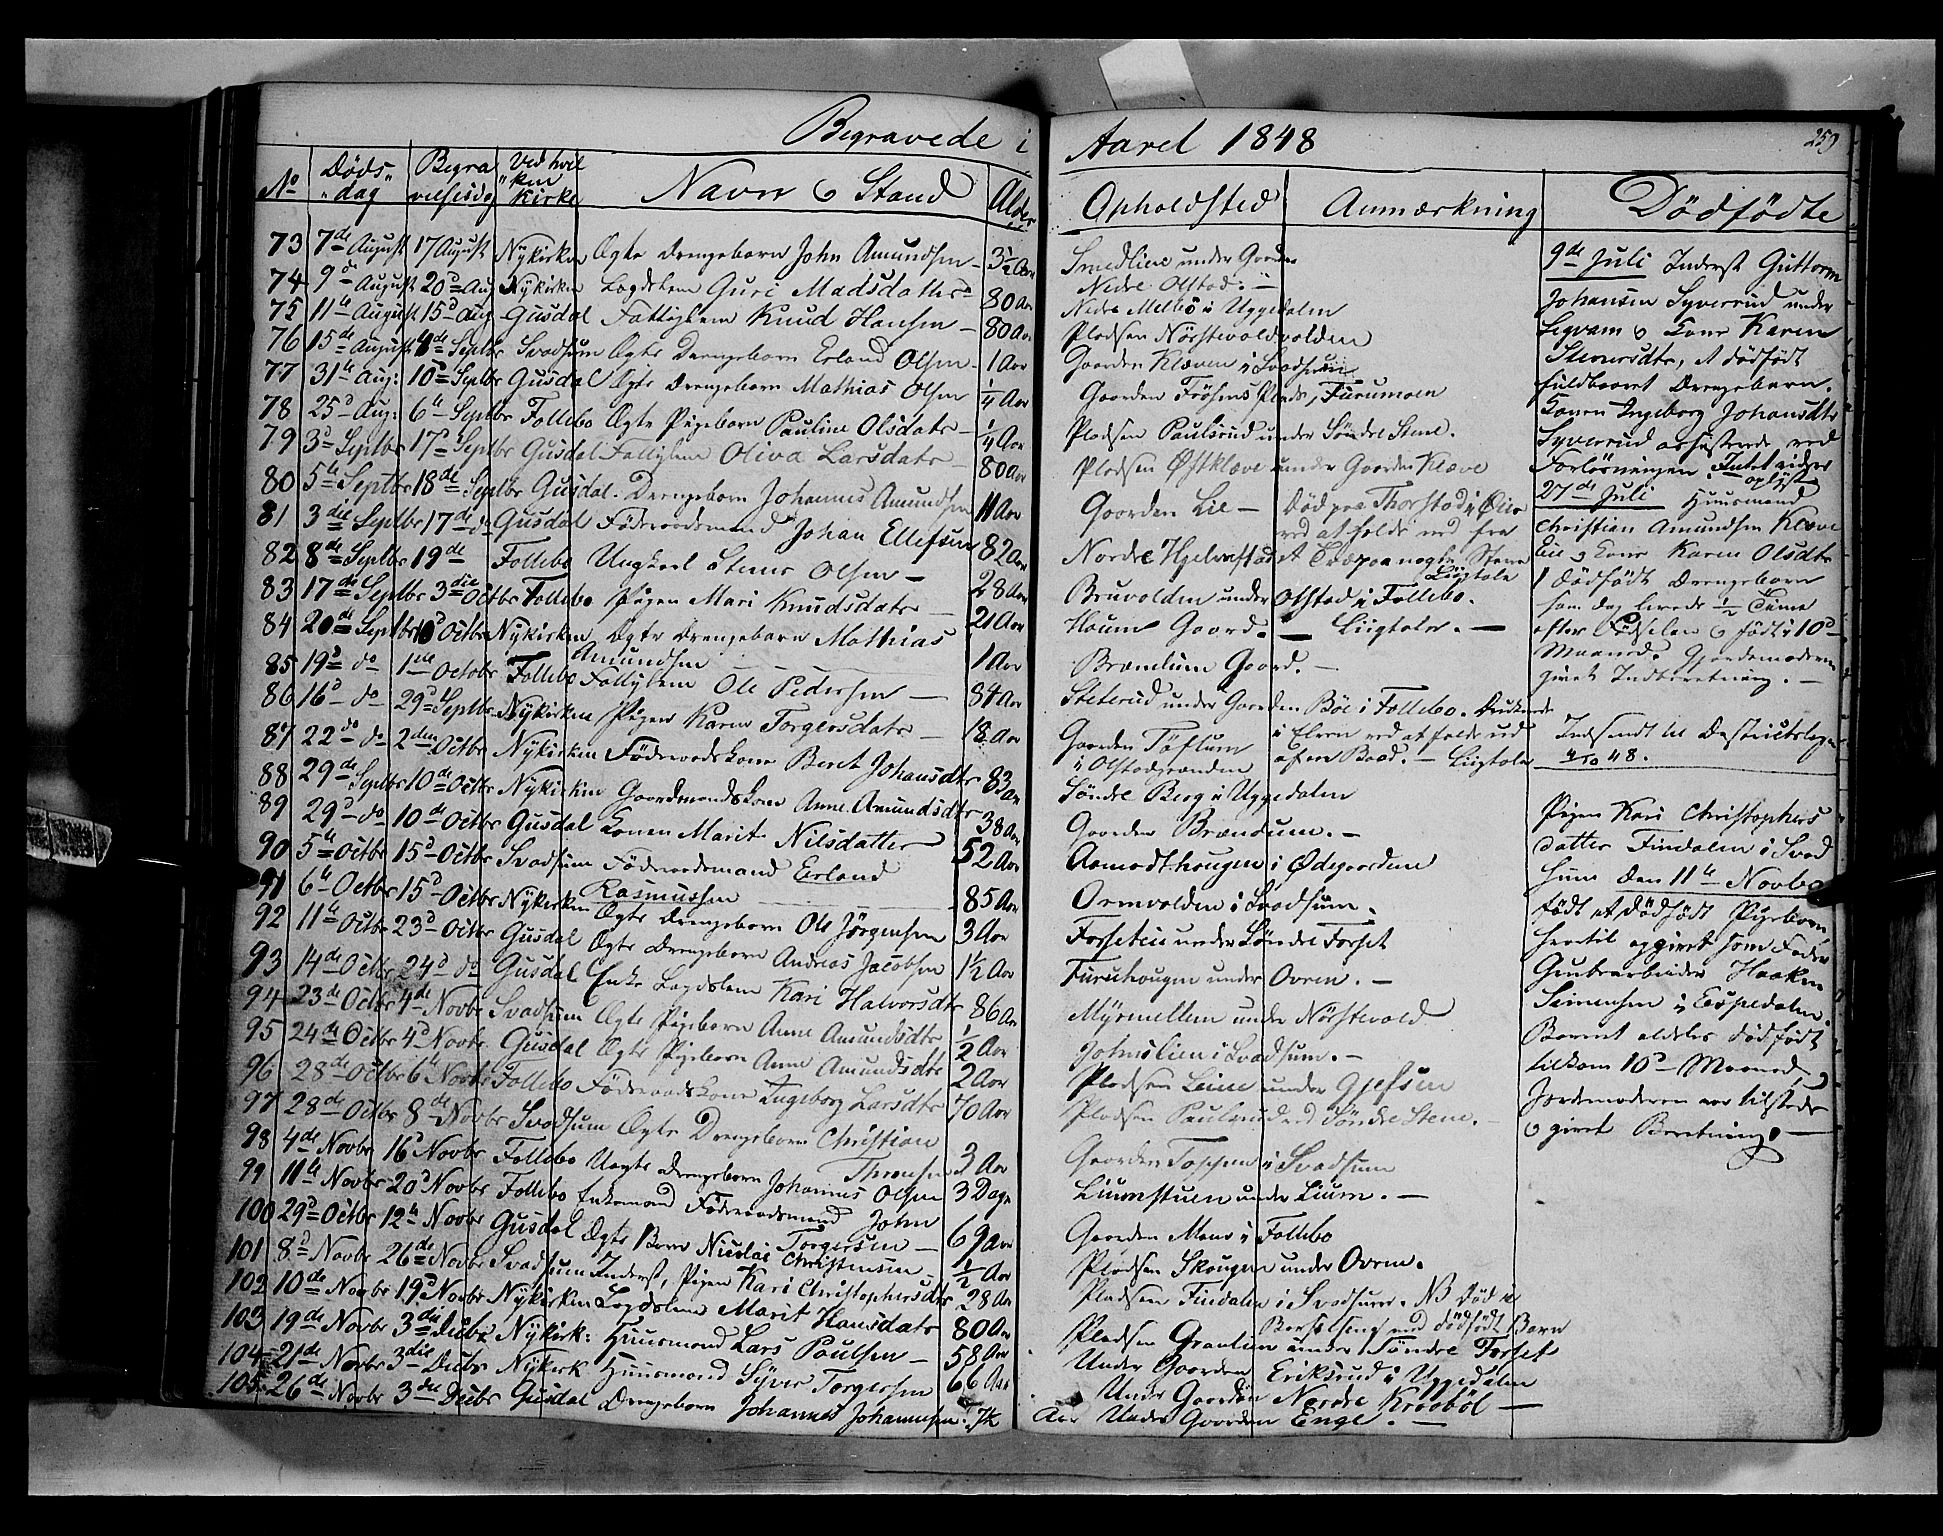 Begravede i Aaret 1848
259
No Døds dag Begra velsesdag Ved hvil ken Kirke Navn & Stand Alder Opholdsted Anmærkning Dødfødte
73 7de August 17 August Nykirken Ægte Drengebarn John Amundsen 3½ Aar Smedlien under Gaarden Nedre Olstad
74 9de August 20d Aug Nykirken Lægdslem Guri Madsdatter 80 Aar Nedre i Uggedalen
75 11te August 15d Aug Gusdal Fattiglem Knud Hansen 80 Aar Pladsen Nörstevoldvolden
76 15de August 4de Septbr Svadsum Ægte Drengebarn Erland Olsen 1 Aar Gaarden Klæven i Svadsum
77 31te Aug: 10de Septbr Gusdal Ægte Drengebarn Mathias Olsen ¼ Aar Gaarden Frösens Plads, Furumoen
78 25d Aug: 6te Septbr Follebo Ægte Pigebarn Pauline Olsdatr ¼ Aar Pladsen Paulsrud under Söndre Stene.
79 3d Septbr 17d Septbr Gusdal Fattiglem Oliva Larsdatr 80 Aar Pladsen Østklæve under Gaarden Klæve
80 5te Septbr 18de Septbr Gusdal Drengebarn Johannes Amundsen 11 Aar Gaarden Lie Död paa Thorstad i Öier ved at falde ned fra et Træ paa nogle Stene Liigtale
81 3die Septbr 17de do Gusdal Föderaadsmand Johan Ellefsen 82 Aar Nordre Hjelmstad
82 8de Septbr 19de Follebo Ungkarl Stener Olsen 28 Aar Bruvolden under Olstad i Follebo.
83 17de Septbr 3die Octbr Follebo Pigen Mari Knudsdatr 21 Aar Haum Gaard. Liigtaler.
84 20de Septbr 10d Octbr Nykirken Ægte Drengebarn Mathias Amundsen 1 Aar Brændum Gaard.
85 19d do 1ste October Follebo Fattiglem Ole Pedersen 84 Aar Steterud under Gaarden Böe i Follebo.
86 16d do 29d Septbr Nykirken Pigen Karen Torgersdatr 18 Aar Gaarden Töftum i Olstadgrænden i Elven ved at falde ud af en Baad. Liigtale
87 22de do 2den Octbr Nykirken Föderaadskone Berit Johansdtr 83 Aar Söndre Berg i Uggedalen
88 29de Septbr 10de Octbr Nykirken Gaardmandskone Anne Amundsdtr 38 Aar Gaarden Brændum.
89 29d do 10de Octbr Gusdal Konen Marit Nilsdatter 52 Aar Aamodthougen i Ødegaarden
90 5te Octbr 15d Octbr Svadsum Föderaadsmand Erland Rasmussen 85 Aar Ormvolden i Svadsum.
91 6te Octbr 15d Octbr Nykirken Ægte Drengebarn Ole Jörgensen 3 Aar Forsetlien under Söndre Forset
92 11te Octbr 23d Octbr Gusdal Ægte Drengebarn Andreas Jacobsen 1½ Aar Furuhougen under Ovren.
93 14de Octbr 24d do Gusdal Enke Lægdslem Kari Halvorsdtr 86 Aar Myrmellem under Nörstevold
94 23de Octbr 4de Novbr Svadsum Ægte Pigebarn Anne Amundsdtr ½ Aar Johnslien i Svadsum.
95 24de Octbr 4d Novbr Gusdal Ægte Pigebarn Anne Amundsdtr 2 Aar Pladsen Leine under Gjefsen
96 28de Octbr 6te Novbr Follebo Föderaadskone Ingeborg Larsdtr 70 Aar Pladsen Paulsrud ved Söndre Stene.
97 28de Octbr 8de Novbr Svadsum Ægte Drengebarn Christian Thronsen 3 Aar Gaarden i Svadsum
98 4de Novbr 16 Novbr Follebo Uægte Drengebarn Johannes Olsen 3 Dage Liumstuen under Lium.
99 11te Novbr 20d Novbr Follebo Enkemand Föderaadsmand John Torgersen 69 Aar Gaarden i Follebo
100 29d Octbr 12te Novbr Gusdal Ægte Barn Nicolai Christensen ½ Aar Pladsen Skougen under Ovren.
101 8d Novbr 26de Novbr Svadsum Inderst, Pigen Kari Christophersdtr 28 Aar Pladsen Findalen i Svadsum. NB Död i Barselseng med dödfödt Barn
102 10de Novbr 19d Novbr Nykirken Lægdslem Marit Hansdatr 80 Aar Pladsen Granlien under Söndre Forset
103 19de Novbr 3die Decbr Nykirk: Huusmand Lars Paulsen 58 Aar Under Gaarden Eriksrud i Uggedalen
104 21de Novbr 3die Decbr Nykirk Huusmand Syver Torgersen 66 Aar Under Gaarden Nordre Kraaböl
105 26de Novbr 3die Decbr Gusdal Drengebarn Johannes Johannesen 7¼ Aar Under Gaarden Enge.
9de Juli Inderst Guttorm
Johansen Syverrud under
Segvam & Kone Karen
Stenersdtr, et dödfödt
fuldbaaret Drengebarn.
Konen Ingeborg Johansdtr
Syverrud assisterede ved
Forlösningen. Intet videre oplyst
27de Juli Huusmand
Christian Amundsen Klæve
Eie & Kone Karen Olsdtr
1 dödfödt Drengebarn
som dog levede ½ Time
efter Födselen & födt i 10d
Maaned. Gjordemoderen
givet Indberetning.
Indsendt til Districtslægen
4/10 48.
Pigen Kari Christophers
datter Findalen i Svad
sum den 11te Novbr
födt et dödfödt Pigebarn
hvortil opgivet som Fader
Grubearbeider Haaken
Simensen i Espedalen.
Barnet aldeles dödfödt
tilkom 10d Maaned,
Jordemoderen var tilstede
& givet Beretning.